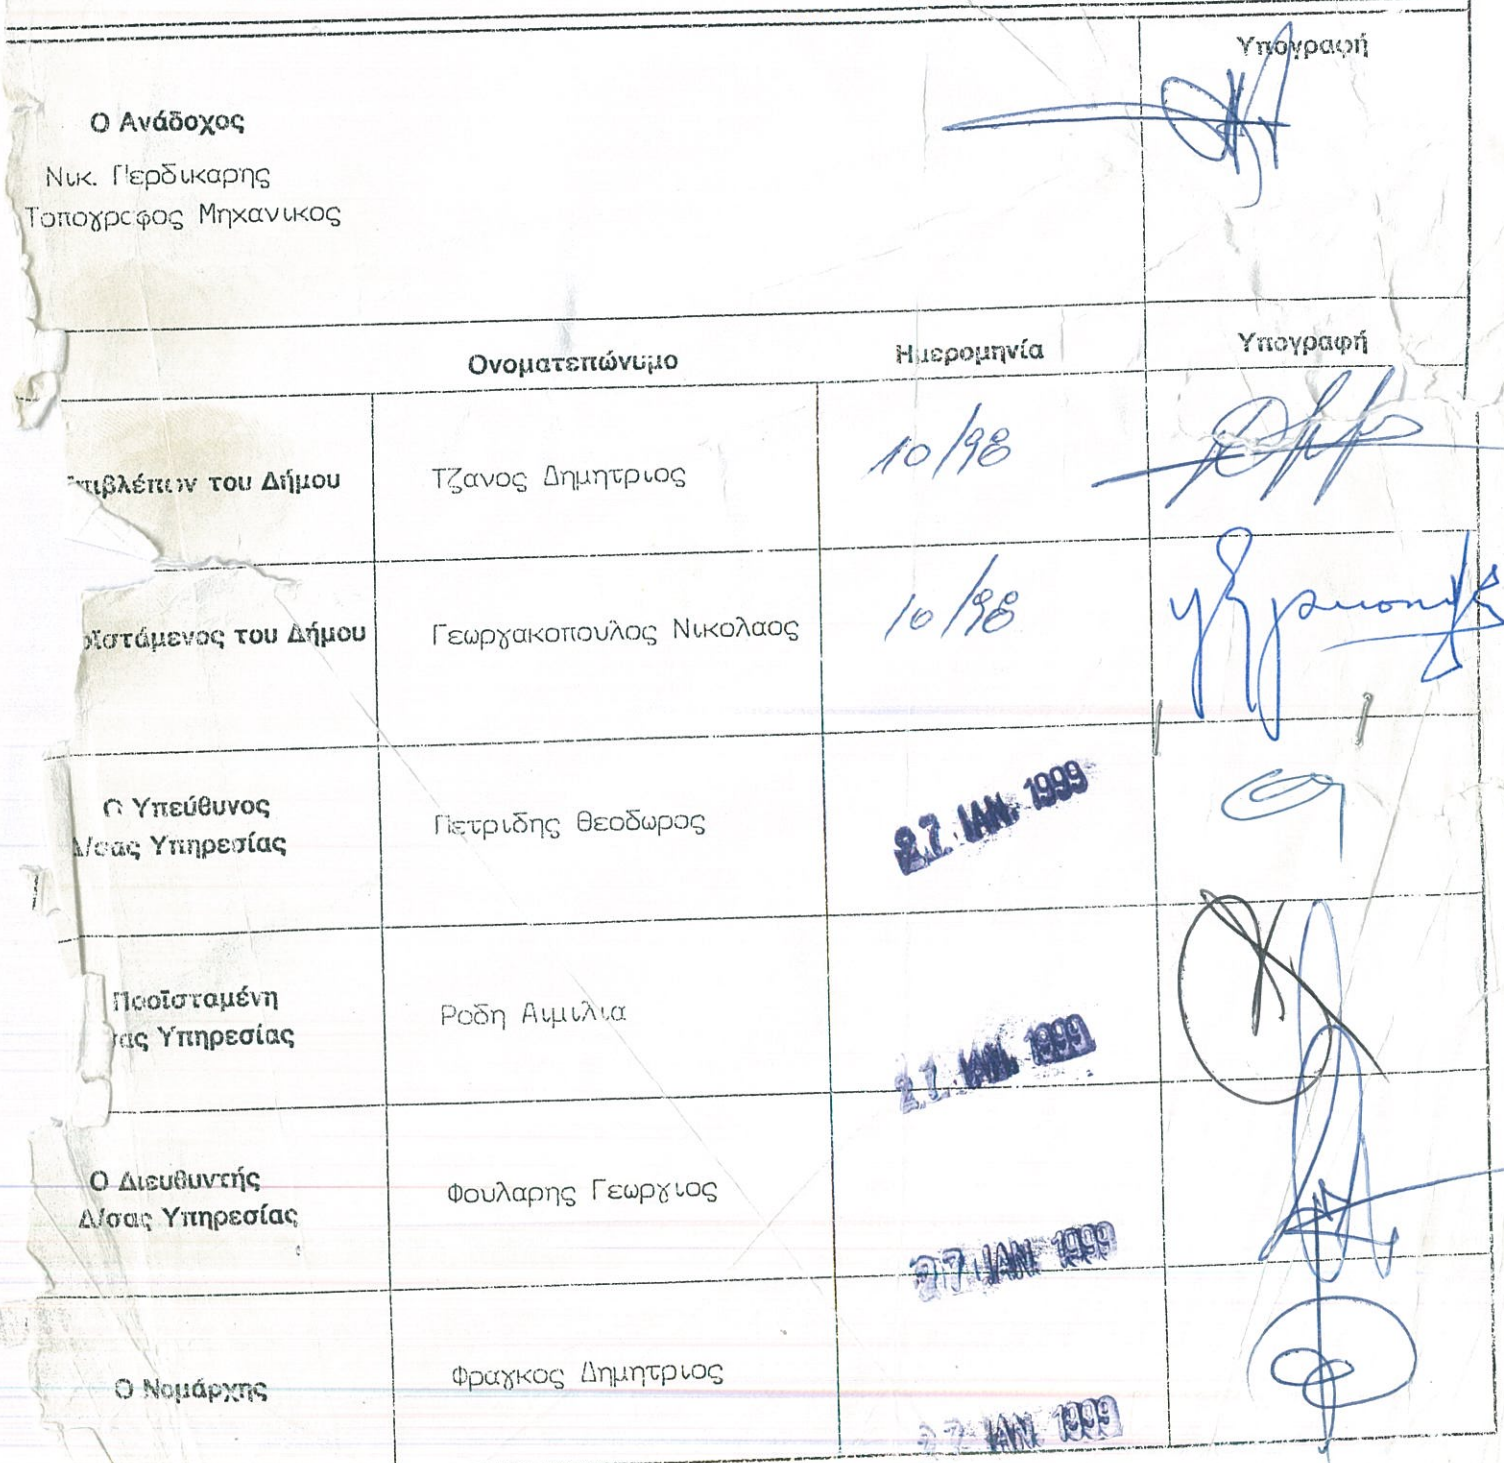 Υπογραφή
Ο Ανάδοχος
Νικ. Περδικαρης
Τοπογραφος Μηχανικος
Ονοματεπώνυμο Ημερομηνία Υπογραφή
πιβλέπων του Δήμου Τζανος Δημητριος 10/98
οϊστάμενος του Δήμου Γεωργακοπουλος Νικολαος 10/98
Ο Υπεύθυνος
Δ/σας Υπηρεσίας
Πετριδης Θεοδωρος
27 ΙΑΝ. 1999
Προϊσταμένη
σας Υπηρεσίας
Ροδη Αιμιλια
27 ΙΑΝ. 1999
Ο Διευθυντής
Δ/σας Υπηρεσίας
Φουλαρης Γεωργιος
27 ΙΑΝ. 1999
Ο Νομάρχης
Φραγκος Δημητριος
27 ΙΑΝ. 1999